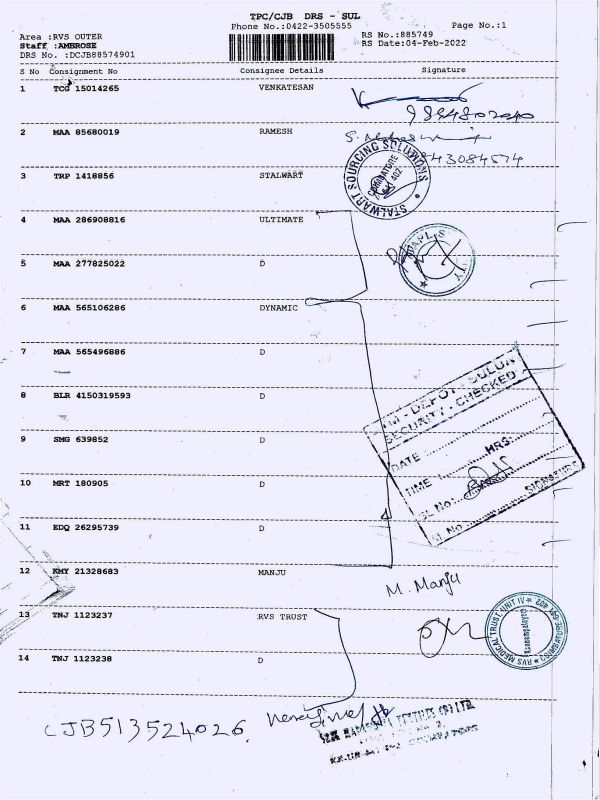 TPC/CJB DRS - SUL
Phone No.:0422-3505555
Page No.:1
Area :RVS OUTER
RS No.:885749
Staff :AMBROSE
RS Date:04-Feb-2022
DRS No. :DCJB88574901
S No Consignment No Consignee Details Signature
1 TCG 15014265 VENKATESAN
2 MAA 85680019 RAMESH
3 TRP 1418856 STALWART
STALWART SOURCING SOLUTIONS
COIMBATORE
641 402
4 MAA 286908816 ULTIMATE
5 MAA 277825022 D
6 MAA 565106286 DYNAMIC
7 MAA 565496886 D
8 BLR 4150319593 D
DEPOT - SULUR
SECURITY - CHECKED
DATE :
TIME : HRS:
SL No:
9 SMG 639852 D
10 MRT 180905 D
11 EDQ 26295739 D
12 KMY 21328683 MANJU
M. Manju
13 TNJ 1123237 RVS TRUST
RVS MEDICAL TRUST, UNIT IV
14 TNJ 1123238 D
CJB513524026